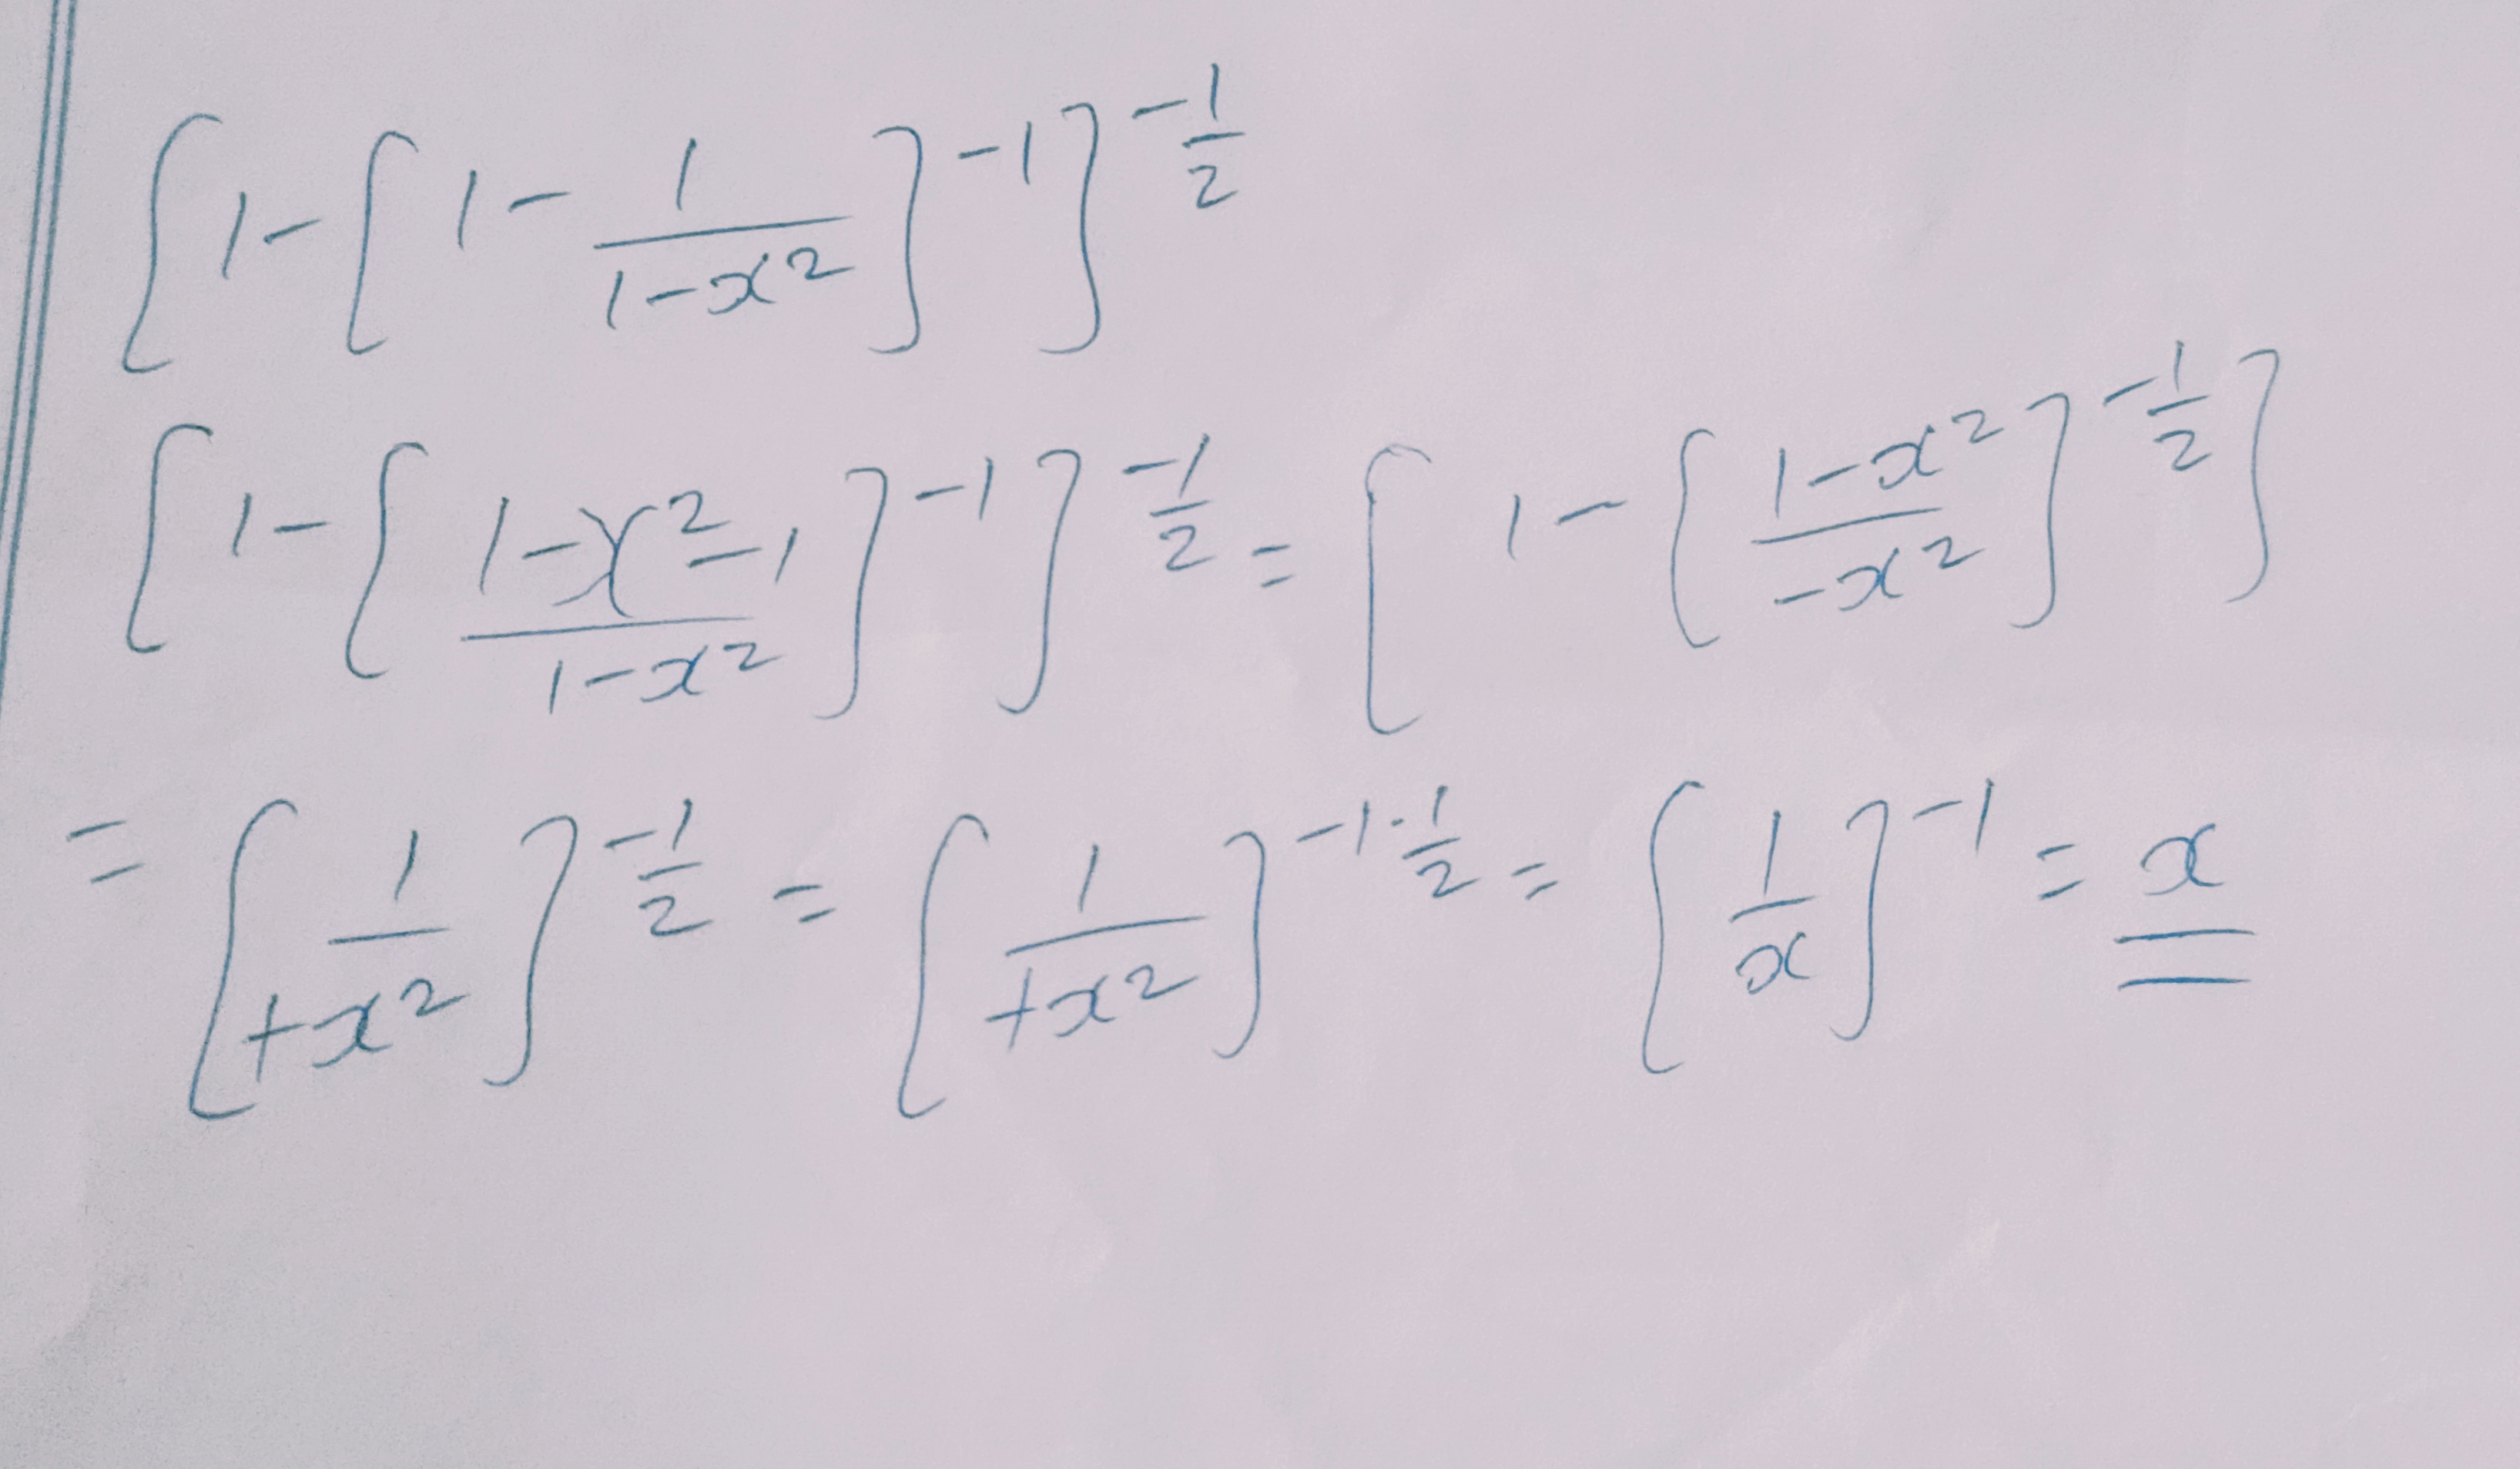 [1-[1-\frac{1}{1-x^2}]^{-1}]^{-\frac{1}{2}}
[1-[\frac{1-x^2-1}{1-x^2}]^{-1}]^{-\frac{1}{2}} = [1-[\frac{1-x^2}{-x^2}]^{-\frac{1}{2}}]
= [\frac{1}{+x^2}]^{-\frac{1}{2}} = [\frac{1}{+x^2}]^{-1 \cdot \frac{1}{2}} = [\frac{1}{x}]^{-1} = x